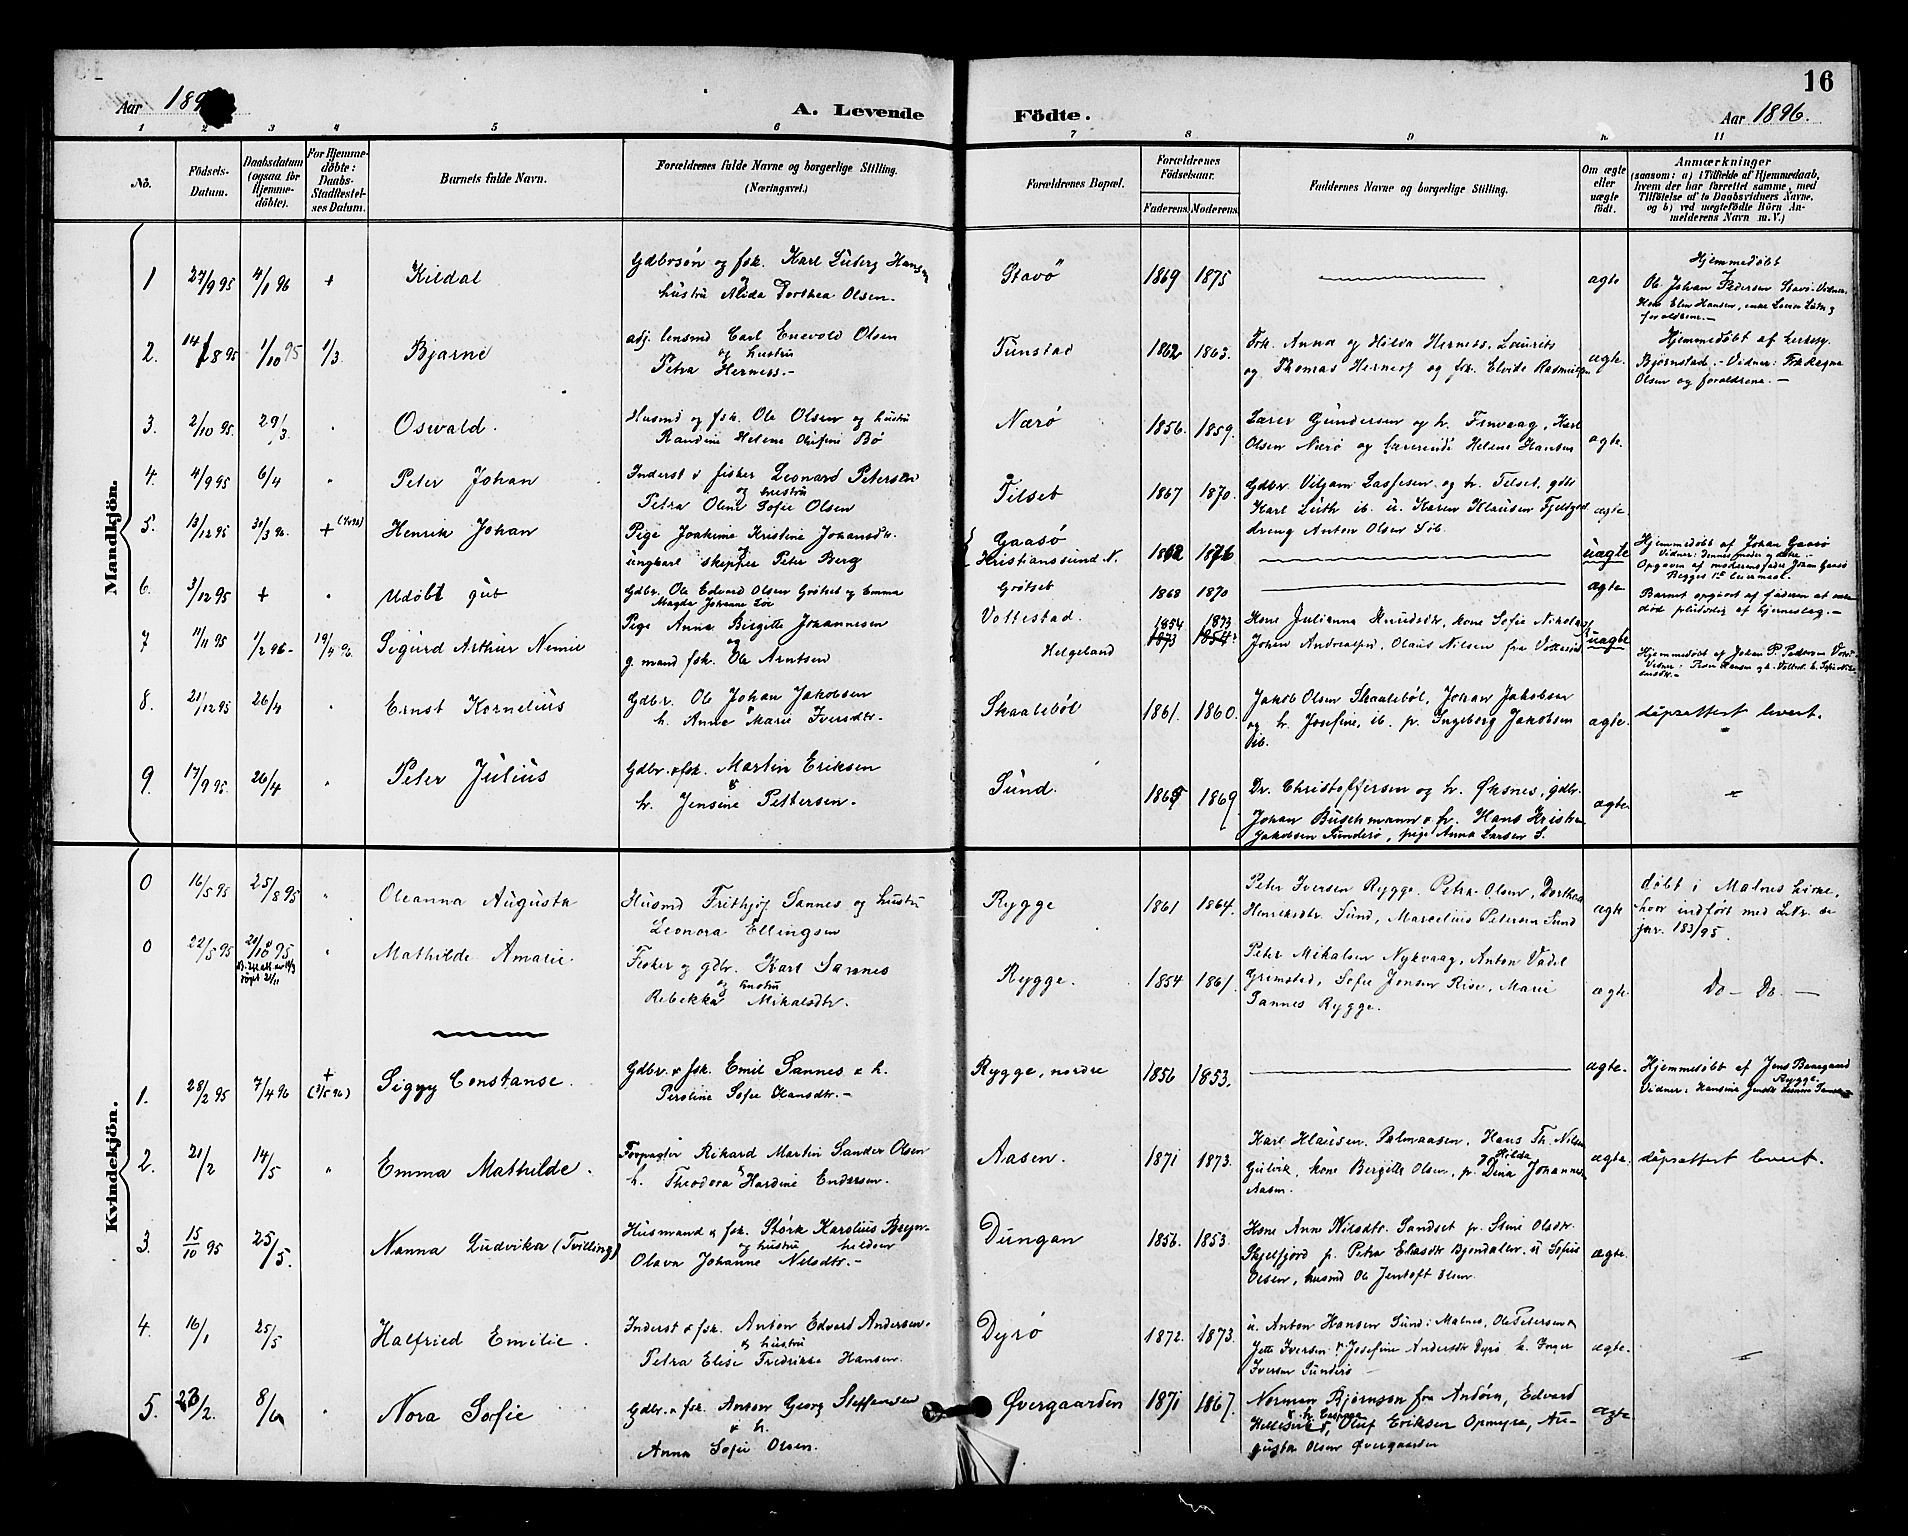 16
Aar 189
A. Levende Födte.
Aar 1896.
1 2 3 4 5 6 7 8 9 10 11
No.
Födsels-Datum.
Daabsdatum (ogsaa for Hjemme-döbte).
For Hjemme-döbte: Daabs-Stadfæstel-ses Datum.
Barnets fulde Navn.
Forældrenes fulde Navne og borgerlige Stilling.
(Næringsvei.)
Forældrenes Bopæl.
Forældrenes Födselsaar.
Faderens. Moderens.
Faddernes Navne og borgerlige Stilling.
Om ægte eller uægte födt.
Anmærkninger
(saasom: a) i Tilfælde af Hjemmedaab, hvem der har forrettet samme, med Tilföielse af to Daabsvidners Navne. og b) ved uægtefödte Börn An-melderens Navn m. V.)
Mandkjön.
1 27/9 95 4/1 96 + Kildal
Gdbrsøn og fsk. Karl Ludvig Hansen
og
hustru Alida Dorthea Olsen.
Stavø 1869 1875 ægte
Hjemmedøbt
Johan Pedersen Stavø. Vidner:
Elen Hansen, enke
forældrene.
2. 14/8 95 1/10 95 1/3 Bjarne
adj. lensmd Carl Enevold Olsen
og hustru
Petra Herness.
Tunstad 1862 1863.
Frk. Anna og Hilda Herness, Laurits
og Thomas Herness og fsk. Elvide Rasmussen
ægte.
Hjemmedøbt af
Bjørnstad. Vidner: Frk Ragna
Olsen og forældrene.
3. 2/10 95. 29/3. " Oswald.
Husmd og fsk. Ole Olsen og hustru
Randine Helene Olufine Bø
Nærø 1856. 1859.
Lærer Gundersen og h. Finvaag, Karl
Olsen Nærø og lærerinde Helene Hansen
ægte.
4. 4/9 95 6/4 " Peter Johan
Inderst & fisker Leonard Petersen
og hustru
Petra Oline Sofie Olsen
Tilset 1867 1870.
Gdbr. Viljam Lassesen og h. Tilset, gdb
Karl Luth ib. u. Karen Klausen Fjeldgd
dreng Anton Olsen Søb.
ægte
5. 13/12 95 30/3 96. + Henrik Johan
Pige Joakime Kristine Johansdtr.
ungkarl skipper Peter Berg
Gaasø
Kristianssund N.
1862 1876 uægte
Hjemmedøbt af Johan Gaasø
Vidner: Dennes moder og
Opgaven af moderens fader Johan Gaasø
Begges 1ste leiermaal.
6. 3/12 95 + " Udøbt gut
Gdbr. Ole Edvard Olsen Grøtset og Emma
Magda Johanne
Grøtset 1868 1870 ægte
Barnet opgivet af faderen at være
død pludselig af hjerneslag.
7 11/11 95 1/2 96 19/4 96. Sigurd Arthur Nimie
Pige Anna Birgitte Johannesen
og
g. mand fsk. Ole Arntsen
Vottestad.
Helgeland
1854 1873
1873 1854?
Kone Julianna Knudsdtr, kone Sofie Nikolai
Johan Andreas Olaus Nilsen fra Vottestad
uægte
Hjemmedøbt af Johan P. Pedersen
8. 21/12 95 26/4 " Ernst Kornelius
Gdbr. Ole Johan Jakobsen
&
h. Anne Marie Iversdtr.
Skaalebøl 1861. 1860.
Jakob Olsen Skaalebøl, Johan Jakobsen
og h. Josefine, ib. p. Ingeborg Jakobsen
ib.
ægte. dåpsattest levert.
9. 17/9 95. 26/4. " Peter Julius
Gdbr. & fsk. Martin Eriksen
&
h. Jensine Pettersen.
Sund. 1865 1869.
Dr. Christoffersen og h. Øksnes, gdbr.
Johan Buschmann & h. Hans Kristian
Jakobsen Sunderø, pige Anna Larsen S.
ægte "
Kvindekjön.
0 16/5 95 25/8 95 " Oleanna Augusta
Husmd Frithjof Sannes og hustru
Leonora Ellingsen
Rygge 1861 1864.
Peter Iversen Rygge. Petra Olsen, Dorthea
Henriksdtr. Sund, Marcelius Petersen Sund
ægte
døbt i Malnes kirke,
hvor indført med L.Nr. se
jnr. 183/95.
0 22/5 95 20/10 95 " Mathilde Amalie
Fisker og gdbr. Karl Sannes
og hustru
Rebekka Mikalsdtr.
Rygge. 1854 1861.
Peter Mikalsen Nykvaag, Anton Vadel
Grimstad, Sofie Jensen Rise, Marie
Sannes Rygge.
ægte. Do - Do. -
1. 28/2 95 7/4 96 + (31/5 96) Siggy Constanse.
Gdbr. & fsk. Emil Sannes & h.
Peroline Sofie Hansdtr.
Rygge, nordre 1856 1853. ægte.
Hjemmedøbt af Jens Benegaard
Rygge.
Vidner: Hansine
2. 21/2 14/5 " Emma Mathilde.
Forpagter Rikard Martin Sander Olsen
&
h. Theodora Hardine Endresen.
Aasen. 1871 1873.
Karl Klausen. Palmaasen. Hans Th. Nilsen
Gulvik, kone Bergitte Olsen, p. Hilda Dina Johannes
Aasen.
ægte. dåpsattest levert.
3. 15/10 95 25/5. Nanna Ludvika (Tvilling)
Husmand & fsk. Størk Karolius Bryn-
og hustru hildsen
Olava Johanne Nilsdtr.
Dungan 1856. 1853.
Kone Anne Nilsdtr. Sandset p. Stine Olsdtr.
Skjelfjord p. Petra Eliasdtr Bjøndalen. u Sofus
Olsen, husmd Ole Jentoft Olsen.
ægte.
4. 16/1 25/5 Halfried Emilie.
Inderst & fsk. Anton Edvard Andersen.
& hustru
Petra Elise Fredrikke Hansen.
Dyrø 1872. 1873.
u. Anton Hansen Sund: Malnes, Ole Petersen &
Jette Iversen & Josefine Andersdtr Dyrø h. Inger
Iversen Sunderø
ægte. "
5. 23/2. 8/6 " Nora Sofie
Gdbr. & fsk. Anton Georg Steffensen
& h.
Anna Sofie Olsen.
Øvergaarden 1871 1867.
Norman Bjørnson fra Andøen, Edvard
Hellesvik & h. Oluf Eriksen Opmyre, Au-
gusta Olsen Øvergaarden
ægte